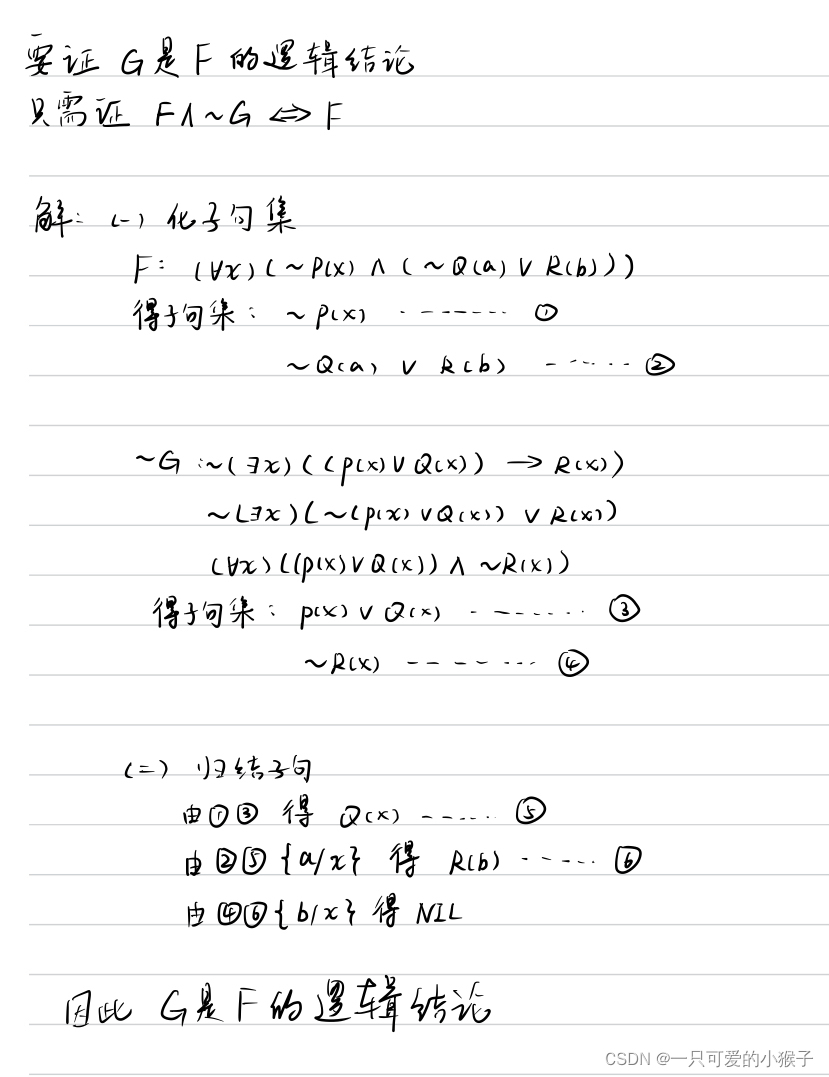 要证 G是F的逻辑结论
只需证 F∧~G ⇔ F
解: (一) 化子句集
F: (∀x)(~P(x) ∧ (~Q(a) ∨ R(b)))
得子句集: ~P(x) ········ ①
~Q(a) ∨ R(b) ······ ②
~G :~(∃x)((P(x)∨Q(x)) → R(x))
~(∃x)(~(P(x)∨Q(x)) ∨ R(x))
(∀x)((P(x)∨Q(x)) ∧ ~R(x))
得子句集: P(x)∨Q(x) ········ ③
~R(x) ········ ④
(二) 归结子句
由①③ 得 Q(x) ······ ⑤
由②⑤{a/x} 得 R(b) ······ ⑥
由④⑥{b/x} 得 NIL
因此 G是F的逻辑结论
CSDN @一只可爱的小猴子